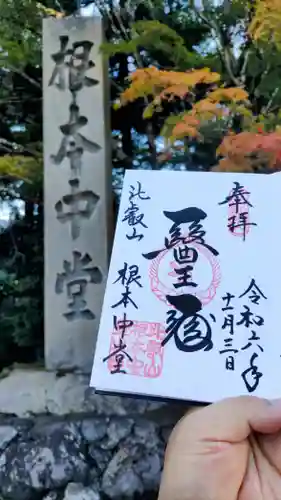 根本中堂
奉拝
令和六年
十一月三日
醫王殿
比叡山
根本中堂